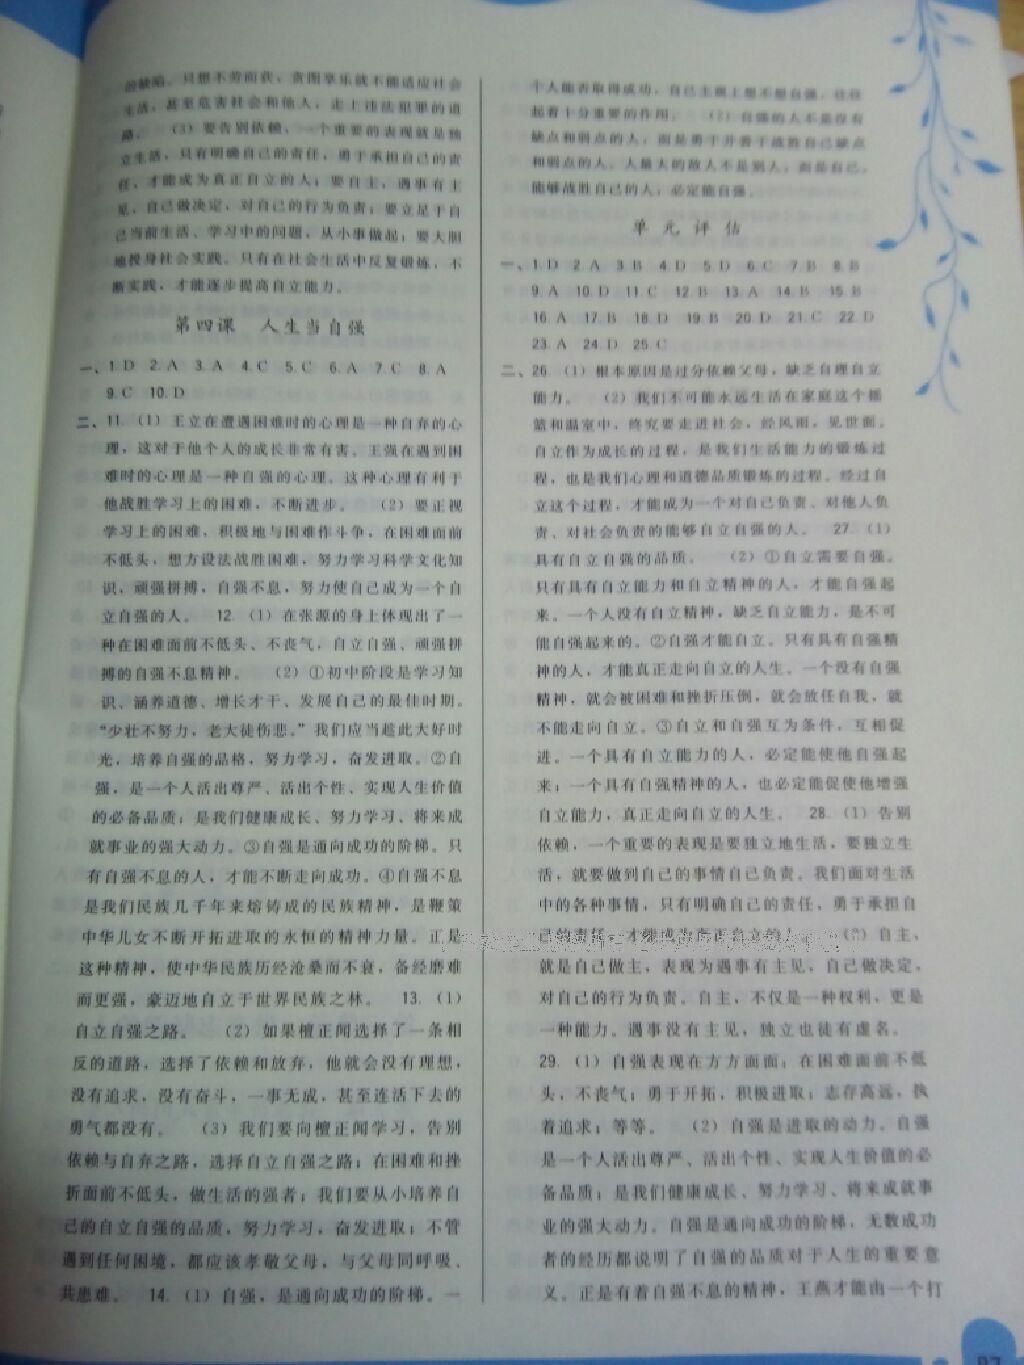 的缺陷。只想不劳而获、贪图享乐就不能适应社会
生活，甚至危害社会和他人，走上违法犯罪的道
路。 （3）要告别依赖，一个重要的表现就是独
立生活，只有明确自己的责任，勇于承担自己的责
任，才能成为真正自立的人；要自主，遇事有主
见，自己做决定，对自己的行为负责；要立足于自
己当前生活、学习中的问题，从小事做起；要大胆
地投身社会实践。只有在社会生活中反复锻炼，不
断实践，才能逐步提高自立能力。
第四课 人生当自强
一、1. D 2. A 3. A 4. C 5. C 6. C 7. C 8. A
9. C 10. D
二、11. （1）王立在遭遇困难时的心理是一种自弃的心
理，这对于他个人的成长非常有害。王强在遇到困
难时的心理是一种自强的心理。这种心理有利于
他战胜学习上的困难，不断进步。 （2）要正视
学习上的困难，积极地与困难作斗争，在困难面前
不低头，想方设法战胜困难，努力学习科学文化知
识，顽强拼搏，自强不息，努力使自己成为一个自
立自强的人。 12. （1）在张源的身上体现出了一
种在困难面前不低头、不丧气，自立自强、顽强拼
搏的自强不息精神。 （2）①初中阶段是学习知
识、涵养道德、增长才干、发展自己的最佳时期。
“少壮不努力，老大徒伤悲。”我们应当趁此大好时
光，培养自强的品格，努力学习，奋发进取。②自
强，是一个人活出尊严、活出个性、实现人生价值
的必备品质；是我们健康成长、努力学习、将来成
就事业的强大动力。③自强是通向成功的阶梯。只
有自强不息的人，才能不断走向成功。④自强不息
是我们民族几千年来熔铸成的民族精神，是鞭策
中华儿女不断开拓进取的永恒的精神力量。正是
这种精神，使中华民族历经沧桑而不衰，备经磨难
而更强，豪迈地自立于世界民族之林。 13. （1）
自立自强之路。 （2）如果檀正闻选择了一条相
反的道路，选择了依赖和放弃，他就会没有理想，
没有追求，没有奋斗，一事无成，甚至连活下去的
勇气都没有。 （3）我们要向檀正闻学习，告别
依赖与自弃之路，选择自立自强之路；在困难和挫
折面前不低头，做生活的强者；我们要从小培养自
己的自立自强的品质，努力学习，奋发进取；不管
遇到任何困境，都应该孝敬父母，与父母同呼吸、
共患难。 14. （1）自强，是通向成功的阶梯。一
个人能否取得成功，自己主观上想不想自强，往往
起着十分重要的作用。 （2）自强的人不是没有
缺点和弱点的人，而是勇于并善于战胜自己缺点
和弱点的人。人最大的敌人不是别人，而是自己，
能够战胜自己的人，必定能自强。
单元评估
一、1. D 2. A 3. B 4. D 5. D 6. C 7. B 8. B
9. A 10. D 11. C 12. B 13. A 14. B 15. B
16. A 17. D 18. D 19. B 20. D 21. C 22. D
23. A 24. D 25. C
二、26. （1）根本原因是过分依赖父母，缺乏自理自立
能力。 （2）我们不可能永远生活在家庭这个摇
篮和温室中，终究要走进社会，经风雨，见世面。
自立作为成长的过程，是我们生活能力的锻炼过
程，也是我们心理和道德品质锻炼的过程。经过自
立这个过程，才能成为一个对自己负责、对他人负
责、对社会负责的能够自立自强的人。 27. （1）
具有自立自强的品质。 （2）①自立需要自强。
只有具有自立能力和自立精神的人，才能自强起
来。一个人没有自立精神，缺乏自立能力，是不可
能自强起来的。②自强才能自立。只有具有自强精
神的人，才能真正走向自立的人生。一个没有自强
精神，就会被困难和挫折压倒，就会放任自我，就
不能走向自立。③自立和自强互为条件，互相促
进。一个具有自立能力的人，必定能使他自强起
来；一个具有自强精神的人，也必定能促使他增强
自立能力，真正走向自立的人生。 28. （1）告别
依赖，一个重要的表现是要独立地生活，要独立生
活，就要做到自己的事情自己负责。我们面对生活
中的各种事情，只有明确自己的责任，勇于承担自
己的责任，才能成为真正自立的人。 （2）自主，
就是自己做主，表现为遇事有主见，自己做决定，
对自己的行为负责。自主，不仅是一种权利，更是
一种能力。遇事没有主见，独立也徒有虚名。
29. （1）自强表现在方方面面；在困难面前不低
头，不丧气；勇于开拓，积极进取；志存高远，执
着追求；等等。 （2）自强是进取的动力。自强
是一个人活出尊严、活出个性、实现人生价值的必
备品质；是我们健康成长、努力学习、将来成就事
业的强大动力。自强是通向成功的阶梯，无数成功
者的经历都说明了自强的品质对于人生的重要意
义。正是有着自强不息的精神，王燕才能由一个打